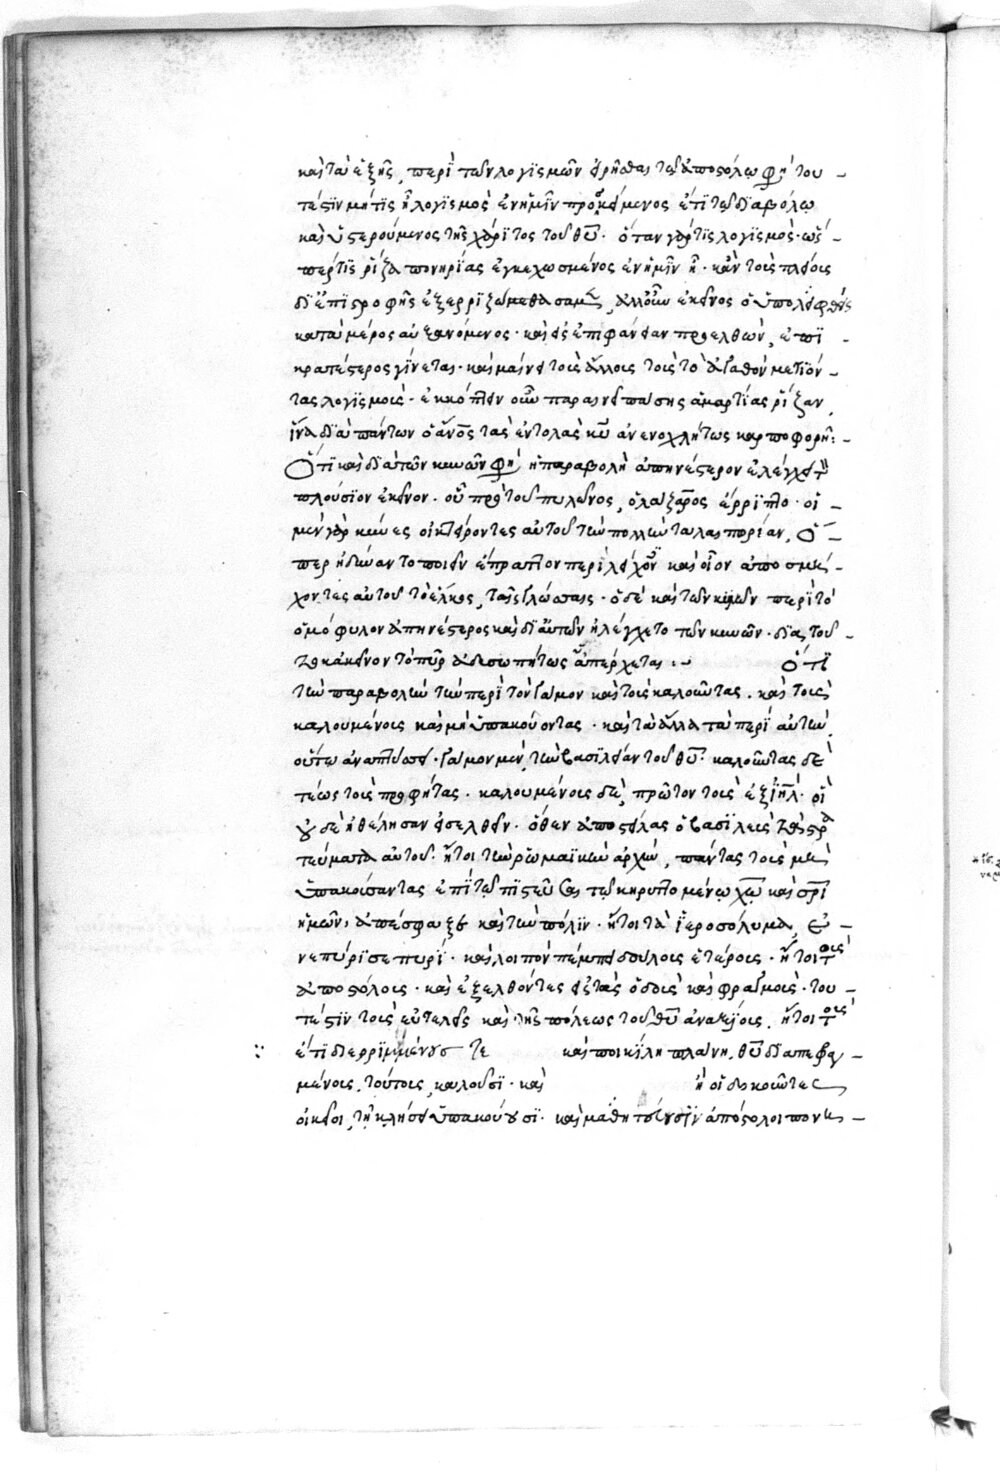 καὶ τὰ ἑξῆς, περὶ τῶν λογϊσμῶν εἰρῆσθαι τῷ ἀποστόλῳ φησὶ· του
τέστϊν μή τϊς ἢ λογϊσμὸς ἐν ἡμῖν προσκείμενος ἔτϊ τῷ δϊαβόλῳ
καὶ ὑστερούμενος τῆς χάρϊτος τοῦ θῦ· ὅταν γάρ τϊς λογϊσμὸς ὡσ
περ τϊς ῥίζα πονηρίας ἐγκεχωσμένος ἐν ἡμῖν ᾖ· κἂν τοὺς πλείους
δϊ ἐπϊστροφῆς ἐξερρϊζώμεθα ἀλλ οὖν ἐκεῖνος ὁ ὑπολειφθεὶς
κατὰ μέρος αὐξανόμενος· καὶ εἰς ἐπϊφάνειαν προελθὼν, ἐπϊ
κρατέστερος γίνεται· καὶ τοῖς ἄλλοις τοῖς τὸ ἀγαθὸν μετϊοῦ
τας λογϊσμοὺς· ἐκκόπτειν οὖν παραινεῖ πάσης ἁμαρτίας ῥίζαν,
ἵνα δϊὰ πάντων ὁ ἄνος τὰς ἐντολὰς κυ ἀνενοχλήτως καρποφορῇ:
Ὅτϊ καὶ δϊὰ τῶν κυνῶν φησὶ ἡ παραβολὴ ἀπηνέστερον ἐλέγχει τ
πλούσϊον ἐκεῖνον· οὗ πρὸ τοῦ πυλῶνος, ὁ λάζαρος ἔρρϊπτο· οἱ
μὲν γὰρ κύνες οἰκτείροντες αὐτοῦ τὴν πολλὴν ταλαιπωρίαν, ὅ
περ ἠδύναντο ποιεῖν ἔπραττον περϊλείχον καὶ οἷον ἀποσμή
χοντες αὐτοῦ τὸ ἕλκος, ταῖς γλώσσαις· ὁ δὲ καὶ τῶν κυνῶν περὶ τὸ
ὁμόφυλον ἀπηνέστερος καὶ δϊ αὐτῶν ἠλέγχετο τῶν κυνῶν· δϊὰ του
το κἀκεῖνον τὸ πῦρ ἀδυσωπήτως ἀπέρχεται:– Ὅτϊ
τὴν παραβολὴν τὴν περὶ τὸν γάμον καὶ τοὺς καλοῦντας· καὶ τοὺς
καλουμένους καὶ μὴ ὑπακούοντας· καὶ τὰ ἄλλα τὰ περὶ αὐτὴν
οὕτω ἀναπτύσσει· γάμον μὲν, τὴν βασϊλείαν τοῦ θῦ· καλοῦντας δὲ
τέως τοὺς προφήτας· καλουμένους δὲ, πρῶτον τοὺς ἐξ ϊηλ· οἳ
οὐδὲ ἠθέλησαν εἰσελθεῖν· ὅθεν ἀποστείλας ὁ βασϊλεὺς τὰ στρα
τεύματα αὐτοῦ· ἤτοι τὴν ῥωμαϊκὴν ἀρχὴν, πάντας τοὺς μὴ
ὑπακούσαντας ἐπὶ τῷ πϊστεῦσαι τῷ κηρυττομένῳ χω καὶ σρι
ἡμῶν, ἀπέσφαξε καὶ τὴν πόλϊν· ἤτοι τὰ ϊεροσόλυμα, ἐ
νεπύρϊσε πυρί· καὶ λοιπὸν πέμπει δούλους ἑτέρους· ἤτοι τοὺς
ἀποστόλους· καὶ ἐξελθόντες εἰς τὰς ὁδοὺς καὶ φραγμοὺς· του
τέστϊν τοὺς εὐτελεῖς καὶ τῆς πόλεως τοῦ θῦ ἀναξίους, ἤτοι τοὺς
ἔτϊ διερρϊμμένους τε καὶ ποικίλη πλάνη θῦ
μένους, τούτους καλοῦσϊ· καὶ ἢ οἱ διοικοῦντες
οἰκεῖοι, τῇ κλήσει ὑπακούουσϊ· καὶ ἀπόστολοι